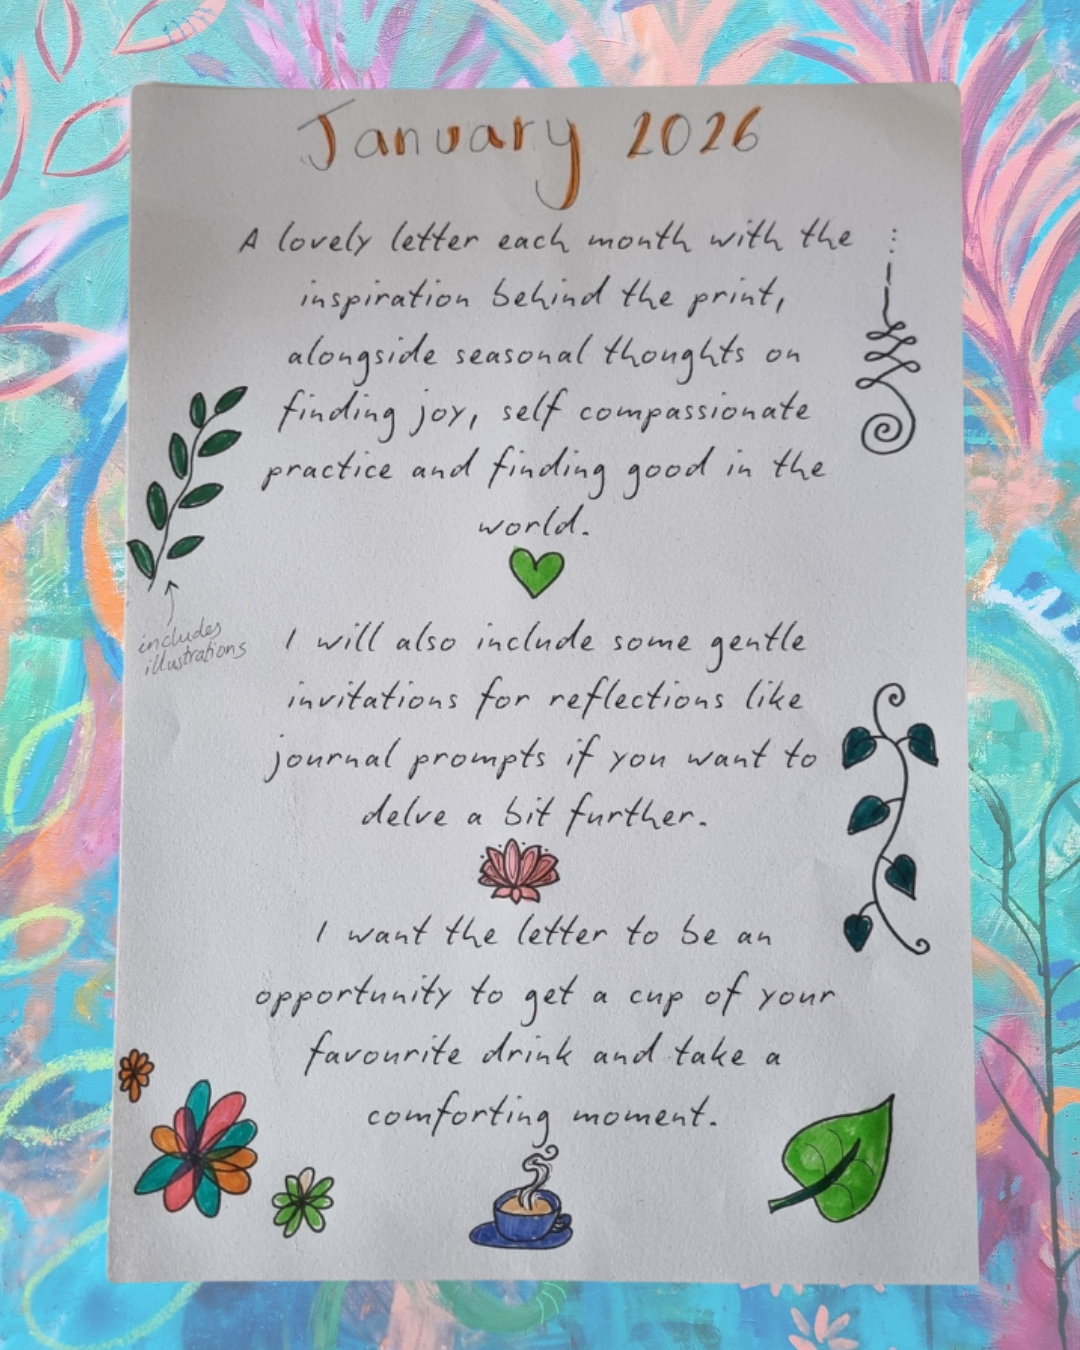 January 2026
A lovely letter each month with the
inspiration behind the print,
alongside seasonal thoughts on
finding joy, self compassionate
practice and finding good in the
world.
includes
illustrations
I will also include some gentle
invitations for reflections like
journal prompts if you want to
delve a bit further.
I want the letter to be an
opportunity to get a cup of your
favourite drink and take a
comforting moment.